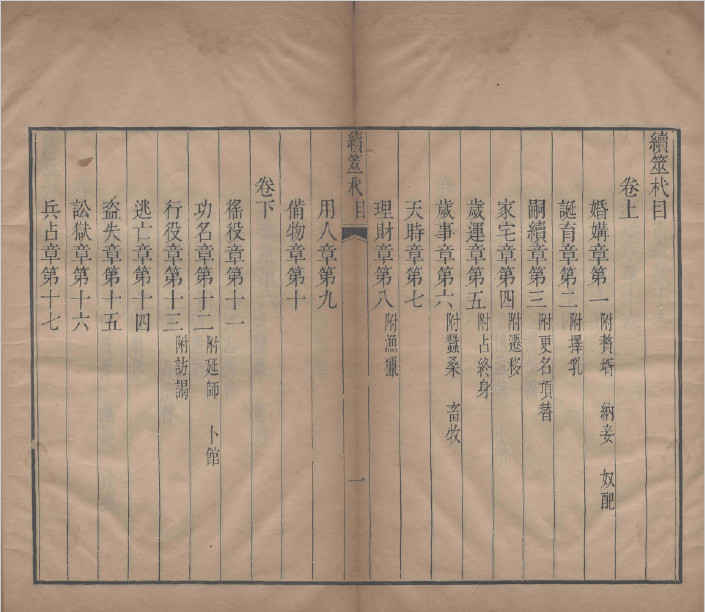 續筮杙目
卷上
婚媾章第一 附贅壻 納妾 奴配
誕育章第二 附擇乳
嗣續章第三 附更名項替
家宅章第四 附遷移
歲運章第五 附占終身
歲事章第六 附蠶桑 畜牧
天時章第七
理財章第八 附漁獵
續筮杙目
一
用人章第九
備物章第十
卷下
徭役章第十一
功名章第十二 附延師 卜館
行役章第十三 附訪謁
逃亡章第十四
盜失章第十五
訟獄章第十六
兵占章第十七